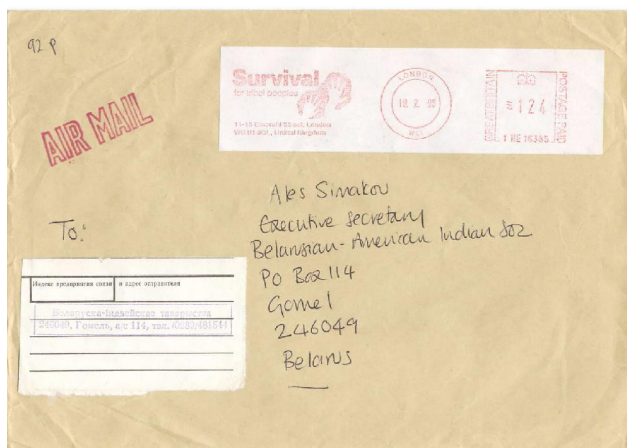 92 P
Survival
for tribal peoples
11-15 Emerald Street, London
WC1N 3QL, United Kingdom
LONDON
WC1
GREAT BRITAIN
124
POSTAGE PAID
AIR MAIL
To:
Ales Simakov
Executive Secretary
Belarusian-American Indian Soz
PO Box 114
Gomel
246049
Belarus
Индекс предприятия связи и адрес отправителя
Беларуска-Індзейскае таварыства
246049, Гомель, а/с 114, тел.